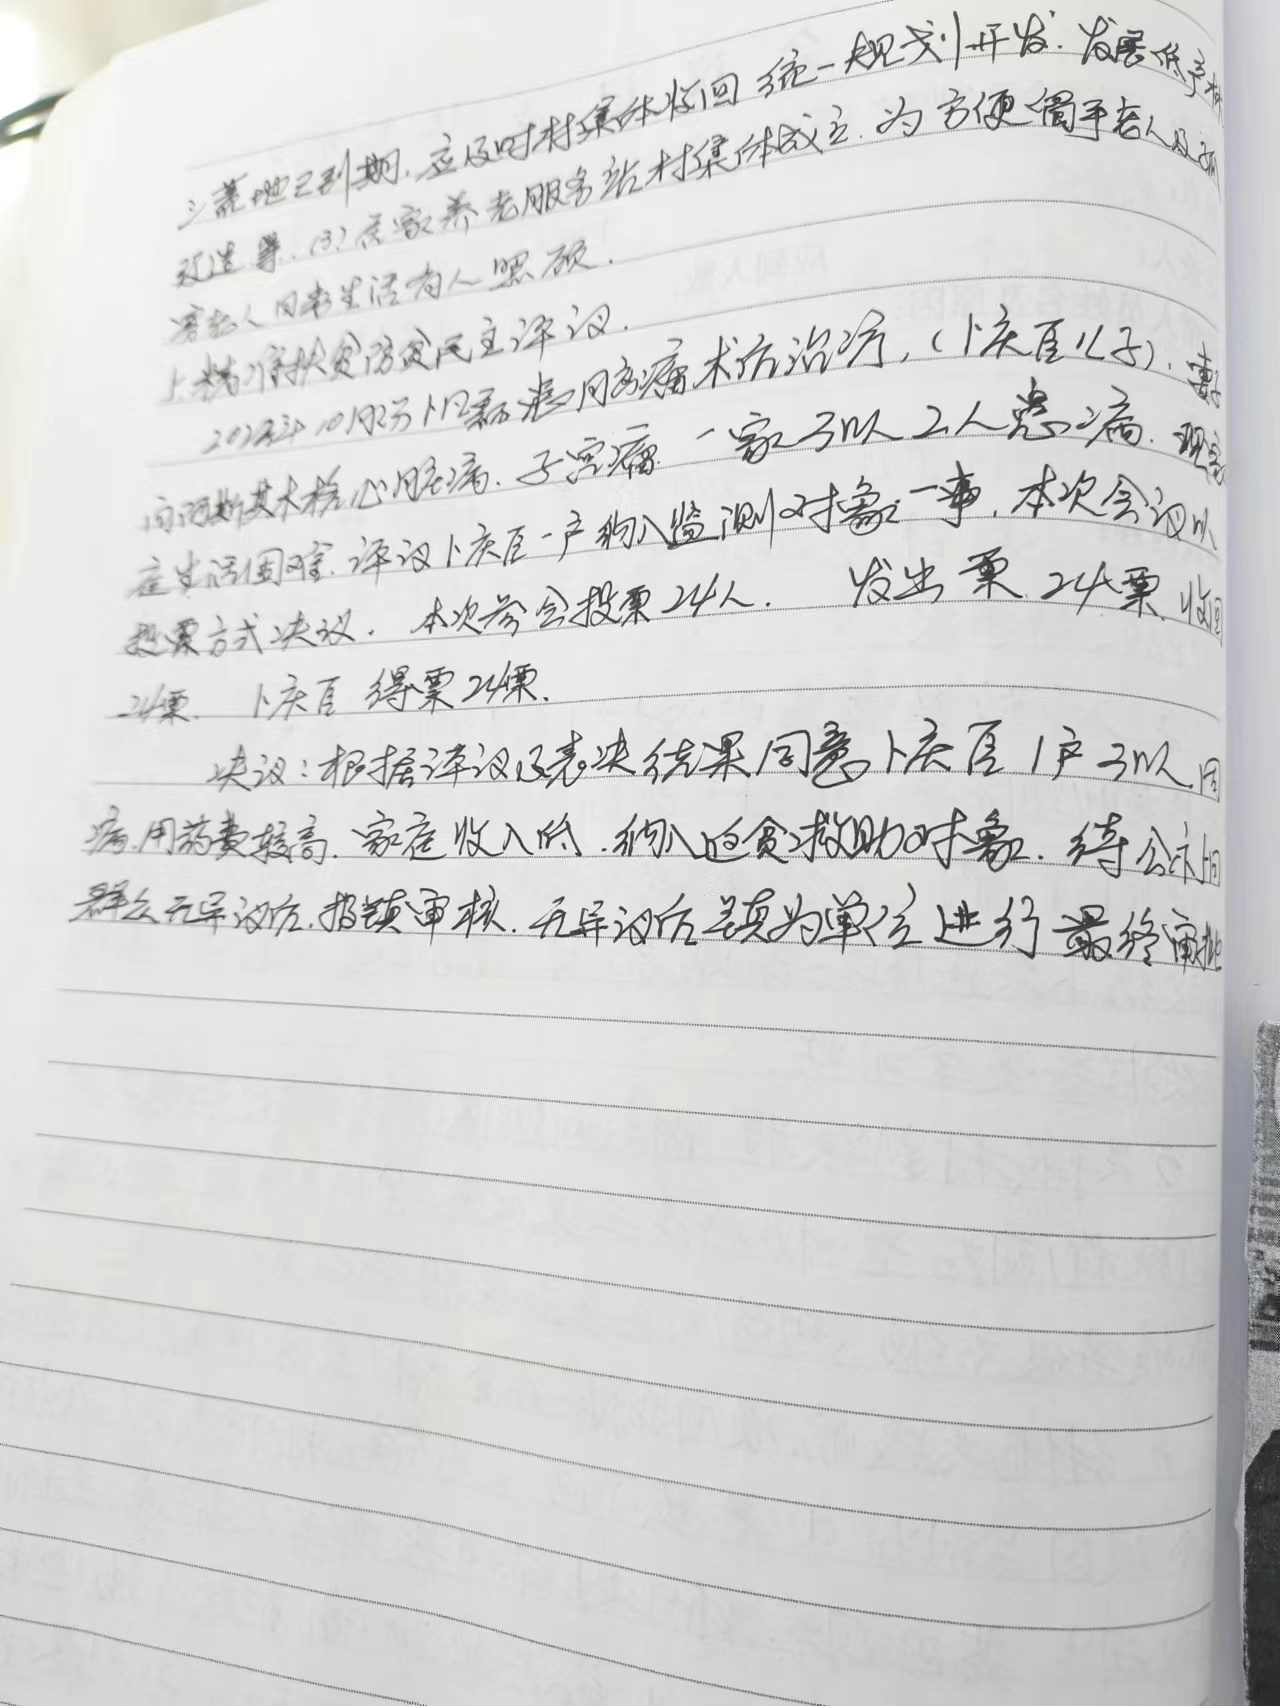 荒地已到期,应及时村集体收回 统一规划开发.发展低产林
改造等.(3)居家养老服务站村集体成立.为方便留守老人及
老人日常生活有人照顾.
1.精准扶贫防贫民主评议.
10月23 卜 新患 癌术后治疗,(卜庆百儿子).妻子
心脏病.子宫癌.一家3口人2人患病.现家
庭生活困难.评议卜庆百一户纳入监测对象一事,本次会议以
投票方式决议. 本次参会投票24人. 发出票24票.收回
24票. 卜庆百 得票24票.
决议:根据评议及表决结果同意卜庆百1户3口人.因
病.用药费较高.家庭收入低.纳入 贫救助对象.待公示后
群众无异议后.报镇审核.无异议后镇为单位进行最终审批